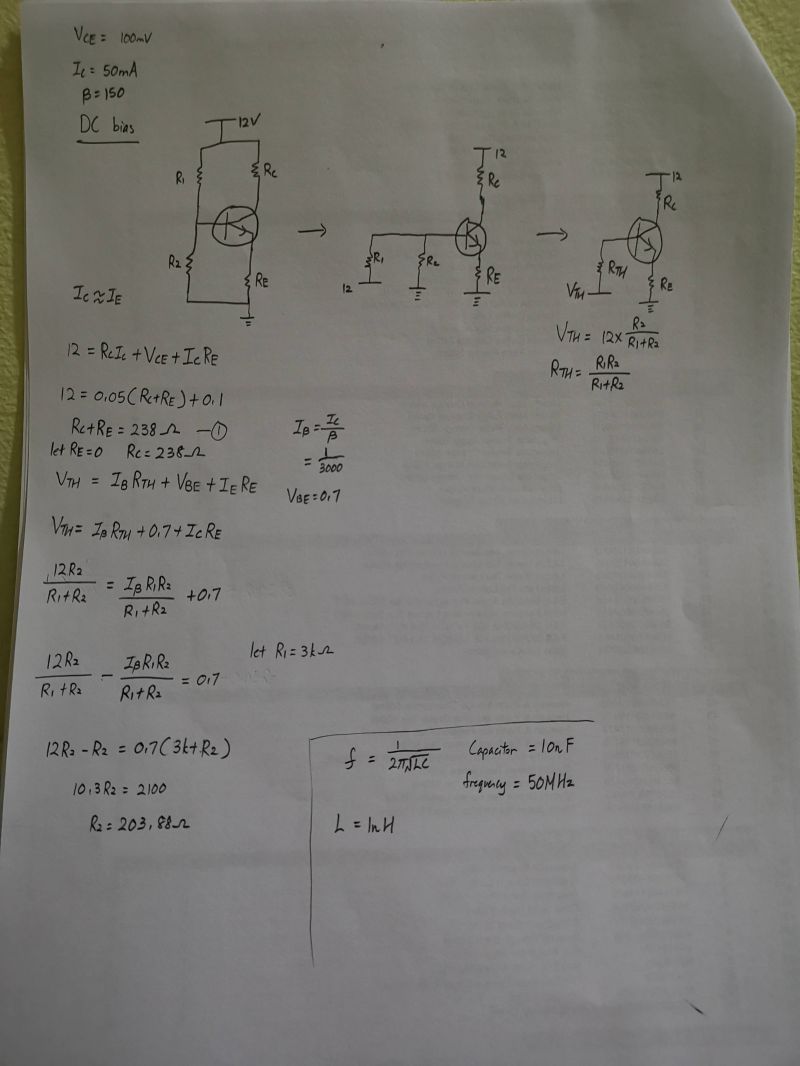 VCE = 100mV
IC = 50mA
β = 150
DC bias
12V
R1
RC
R2
RE
12
RC
R1
R2
12
RE
12
RC
RTH
VTH
RE
IC ≈ IE
VTH = 12 × R2/(R1+R2)
RTH = R1R2/(R1+R2)
12 = RCIC + VCE + ICRE
12 = 0,05(RC+RE) + 0,1
RC+RE = 238Ω —①
let RE=0 RC = 238Ω
IB = IC/β
= 1/3000
VBE = 0,7
VTH = IBRTH + VBE + IERE
VTH = IBRTH + 0,7 + ICRE
12R2/(R1+R2) = IBR1R2/(R1+R2) + 0,7
let R1 = 3kΩ
12R2/(R1+R2) − IBR1R2/(R1+R2) = 0,7
12R2 − R2 = 0,7(3k+R2)
10,3R2 = 2100
R2 = 203,88Ω
f = 1/(2π√LC)
Capacitor = 10nF
frequency = 50MHz
L = 1nH